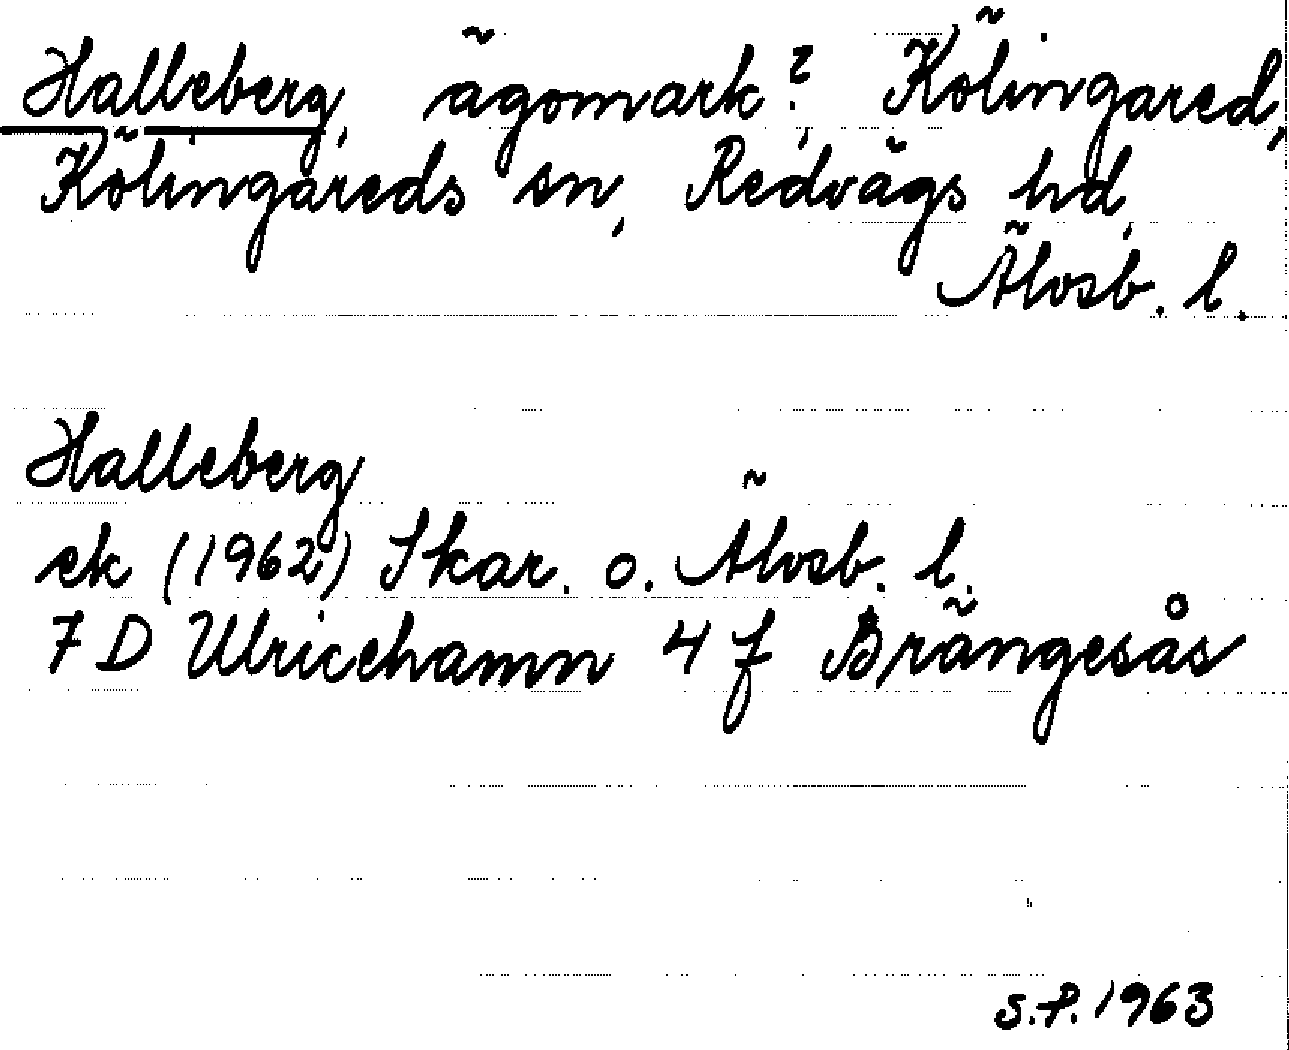 Halleberg, ägomark?, Kölingared,
Kölingareds sn, Redvägs hd,
Älvsb. l.
Halleberg
ek (1962) Skar. o. Älvsb. l.
7 D Ulricehamn 4 f Brängesås
S.P. 1963